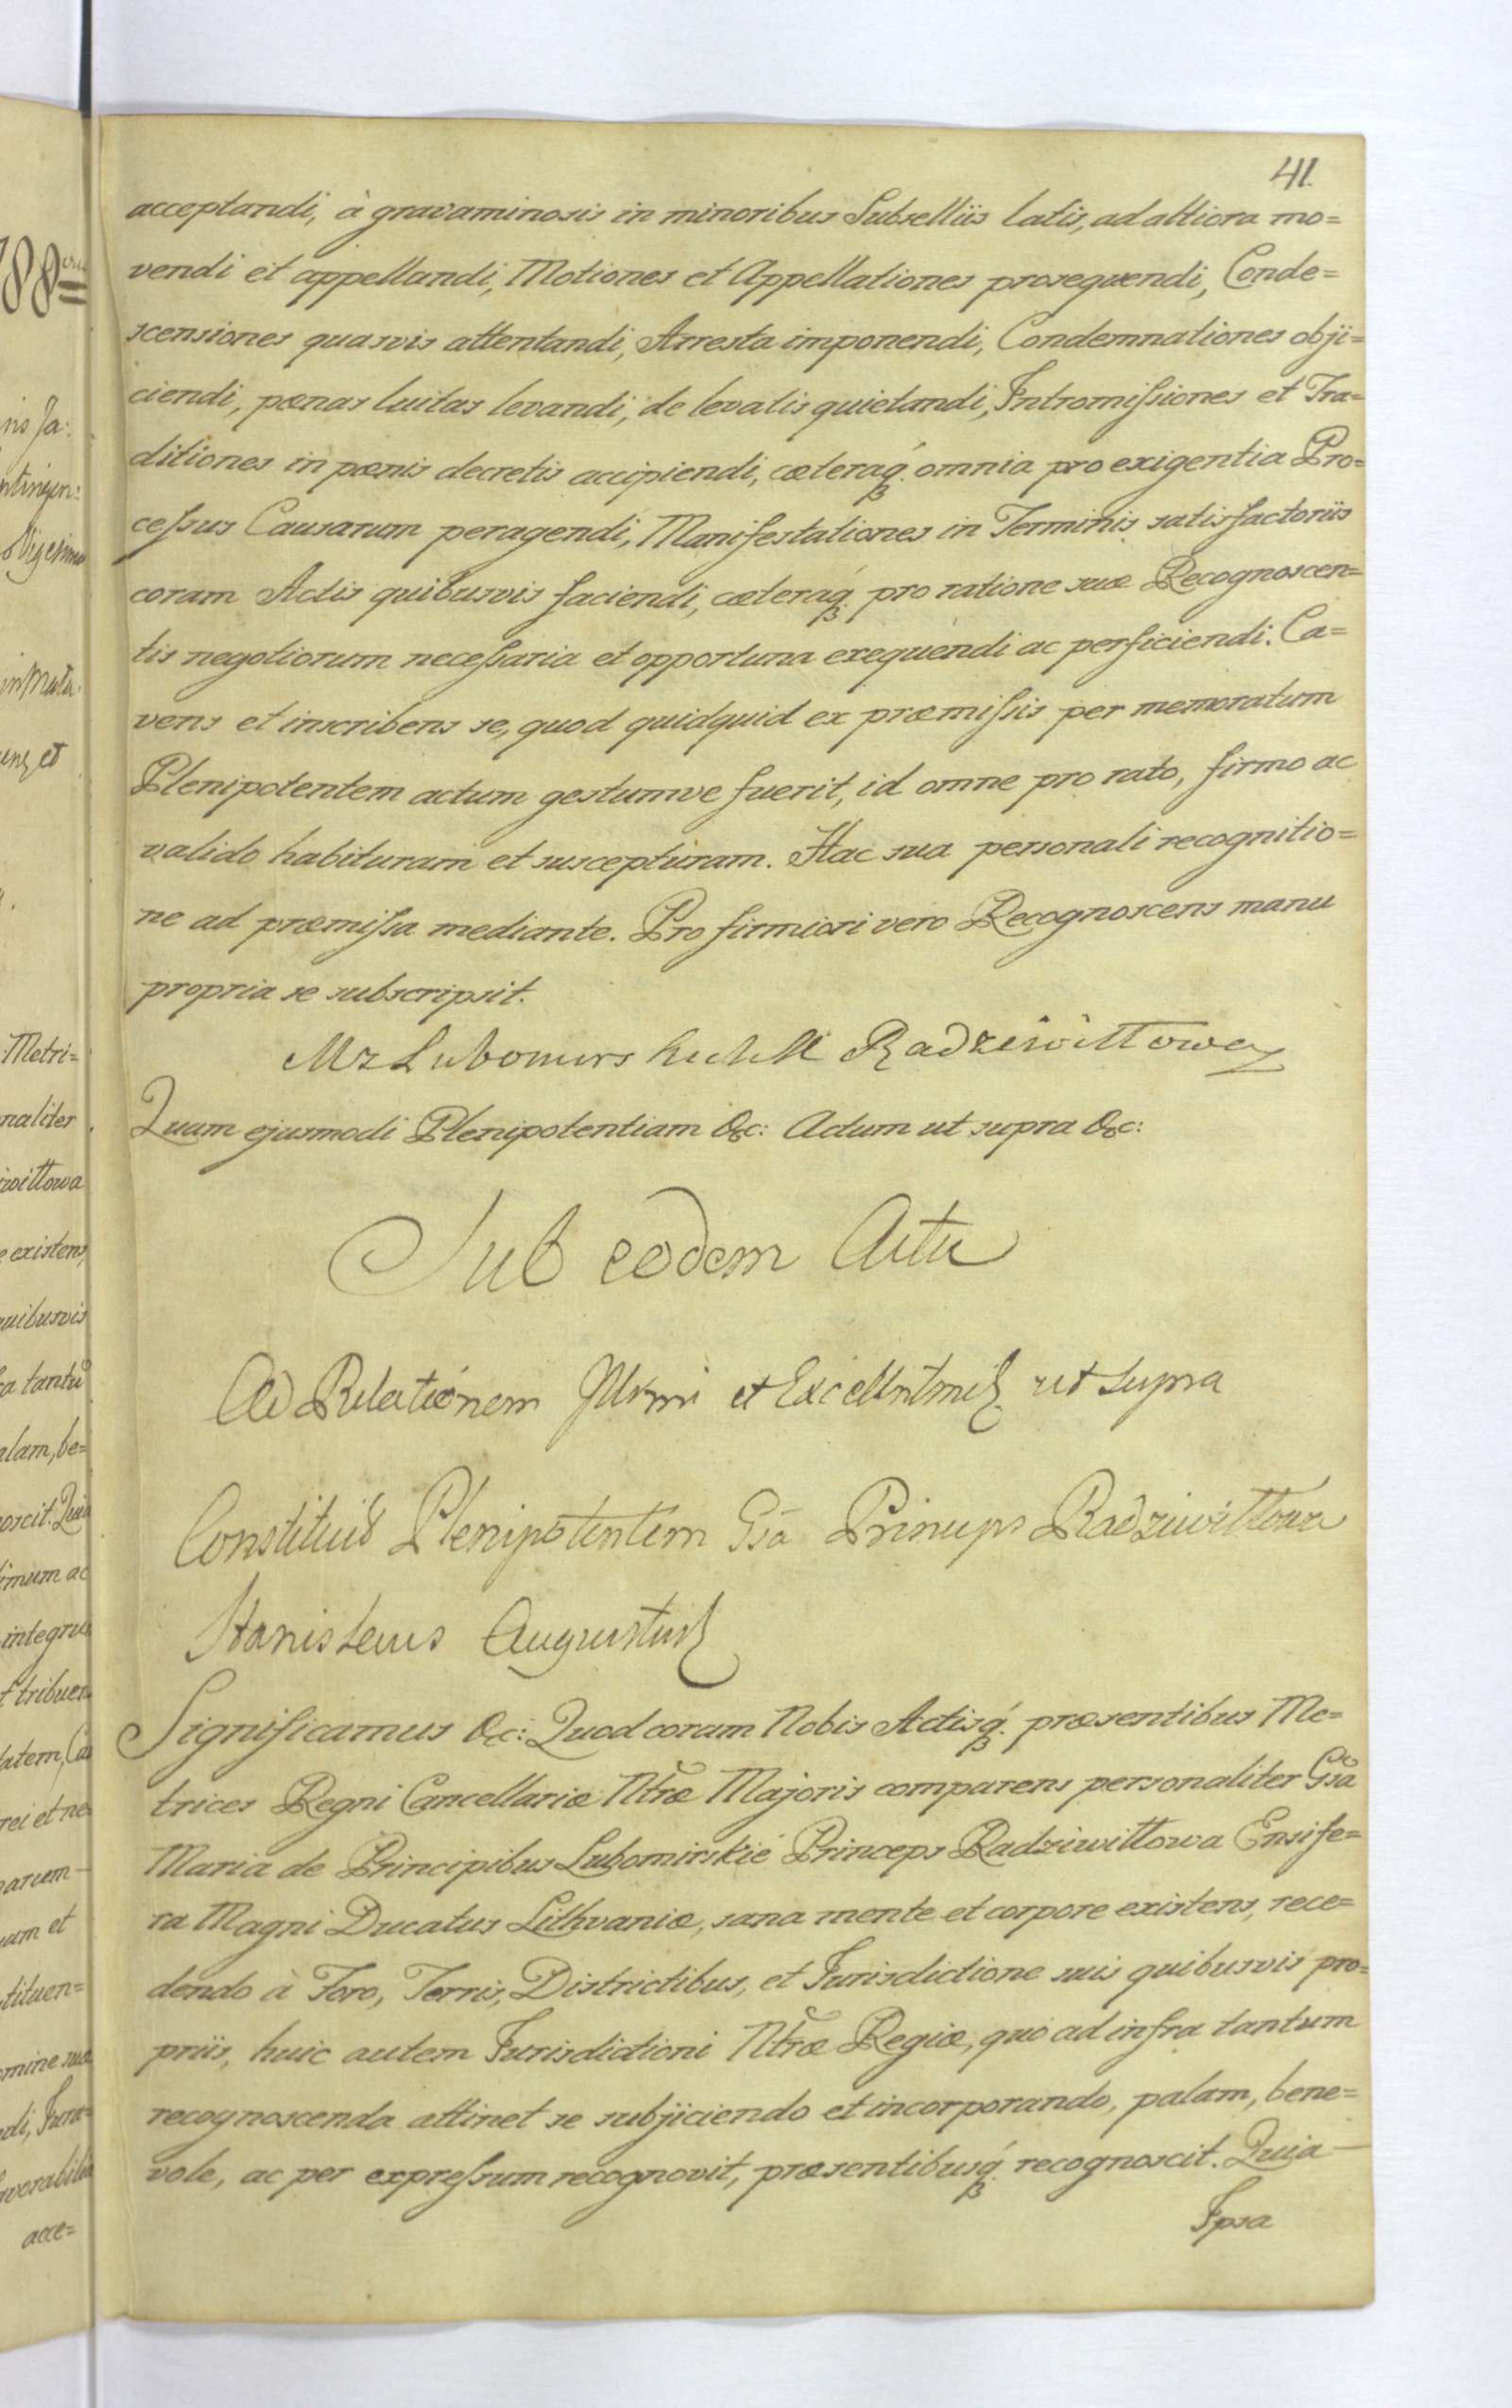 41.
acceptandi, à gravaminosis in minoribus Subselliis latis, ad altiora mo=
vendi et appellandi, Motiones et Appellationes prosequendi, Conde=
scensiones quasvis attentandi, Arresta imponendi, Condemnationes obji=
ciendi, pœnas luitas levandi, de levatis quietandi, Intromiſsiones et Tra=
ditiones in pœnis decretis accipiendi, cœteraq́; omnia pro exigentia Pro=
ceſsus Causarum peragendi, Manifestationes in Terminis satisfactoriis
coram Actis quibusvis faciendi, cœteraq́; pro ratione suæ Recognoscen=
tis negotiorum neceſsaria et opportuna exequendi ac perficiendi. Ca=
vens et inscribens se, quod quidquid ex præmiſsis per memoratum
Plenipotentem actum gestumve fuerit, id omne pro rato, firmo ac
valido habituram et suscepturam. Hac sua personali recognitio=
ne ad præmiſsa mediante. Pro firmiori vero Recognoscens manu
propria se subscripsit.
Radziwiłłowa
Quam ejusmodi Plenipotentiam &c: Actum ut supra &c:
Sub eodem Actu
Ad Relationem Illrmi et Excellntmi ut supra
Constituit Plenipotentem Gsa Princeps Radziwiłłowa
Stanislaus Augustus
Significamus &c: Quod coram Nobis Actisq́; præsentibus Me=
trices Regni Cancellariæ Ntræ Majoris comparens personaliter Gsa
Maria de Principibus Lubomirskie Princeps Radziwiłłowa Ensife=
ra Magni Ducatus Lithvaniæ, sana mente et corpore existens, rece=
dendo à Foro, Terris, Districtibus, et Jurisdictione suis quibusvis pro=
priis, huic autem Jurisdictioni Ntræ Regiæ, quo ad infra tantum
recognoscenda attinet se subjiciendo et incorporando, palam, bene=
vole, ac per expreſsum recognovit, præsentibusq́; recognoscit. Quia
Ipsa